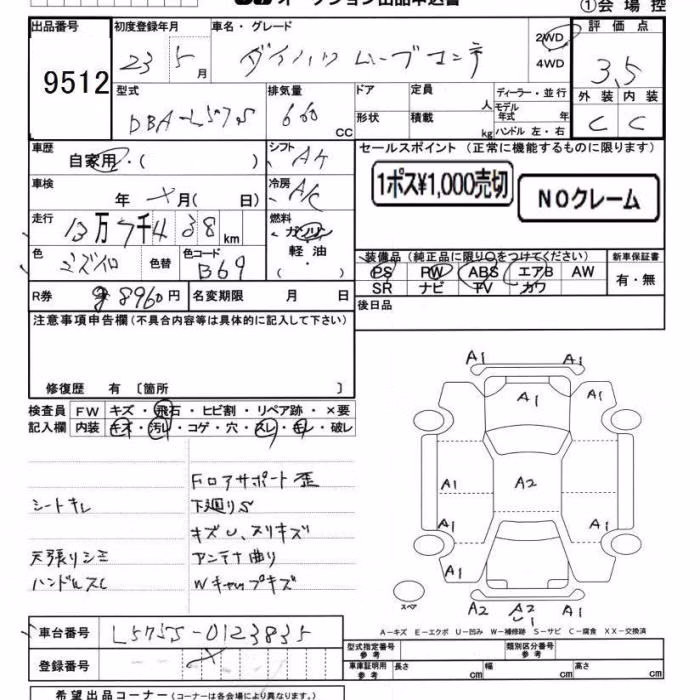 オークション出品申込書
①会場控
出品番号 9512
初度登録年月 23 5月
車名・グレード ダイハツ ムーブコンテ
2WD
4WD
評価点 3.5
外装 内装
C C
型式 DBA-L575S
排気量 660 CC
ドア
形状
定員 人
積載 kg
ディーラー・並行
モデル年式 年
ハンドル 左・右
車歴 自家用・( )
シフト AT
セールスポイント (正常に機能するものに限ります)
1ポス¥1,000売切
NOクレーム
車検 年 月( 日)
冷房 A/C
走行 13万7千4 38 km
燃料 ガソリン
軽油
( )
色 ミズイロ
色替
色コード B69
装備品 (純正品に限り○をつけてください)
PS PW ABS エアB AW
SR ナビ TV カワ
新車保証書
有・無
R券 8960円
名変期限 月 日
後日品
注意事項申告欄(不具合内容等は具体的に記入して下さい)
修復歴 有 〔箇所 〕
検査員記入欄
FW キズ・飛石・ヒビ割・リペア跡・×要
内装 キズ・汚レ・コゲ・穴・スレ・キレ・破レ
Fロアサポート歪
シートキレ
下廻りS
キズU、スリキズ
天張りシミ
アンテナ曲り
ハンドルスレ
Wキャップキズ
A1 A1
A1 A1
A1 A2 A1
A1 A1
A1
A2 A2 A1
U1
スペア
A-キズ E-エクボ U-凹み W-補修跡 S-サビ C-腐食 XX-交換済
車台番号 L575S-0123835
登録番号
型式指定番号 参考
類別区分番号 参考
車庫証明用 参考
長さ cm
幅 cm
高さ cm
希望出品コーナー (コーナーは各会場により異なります。)